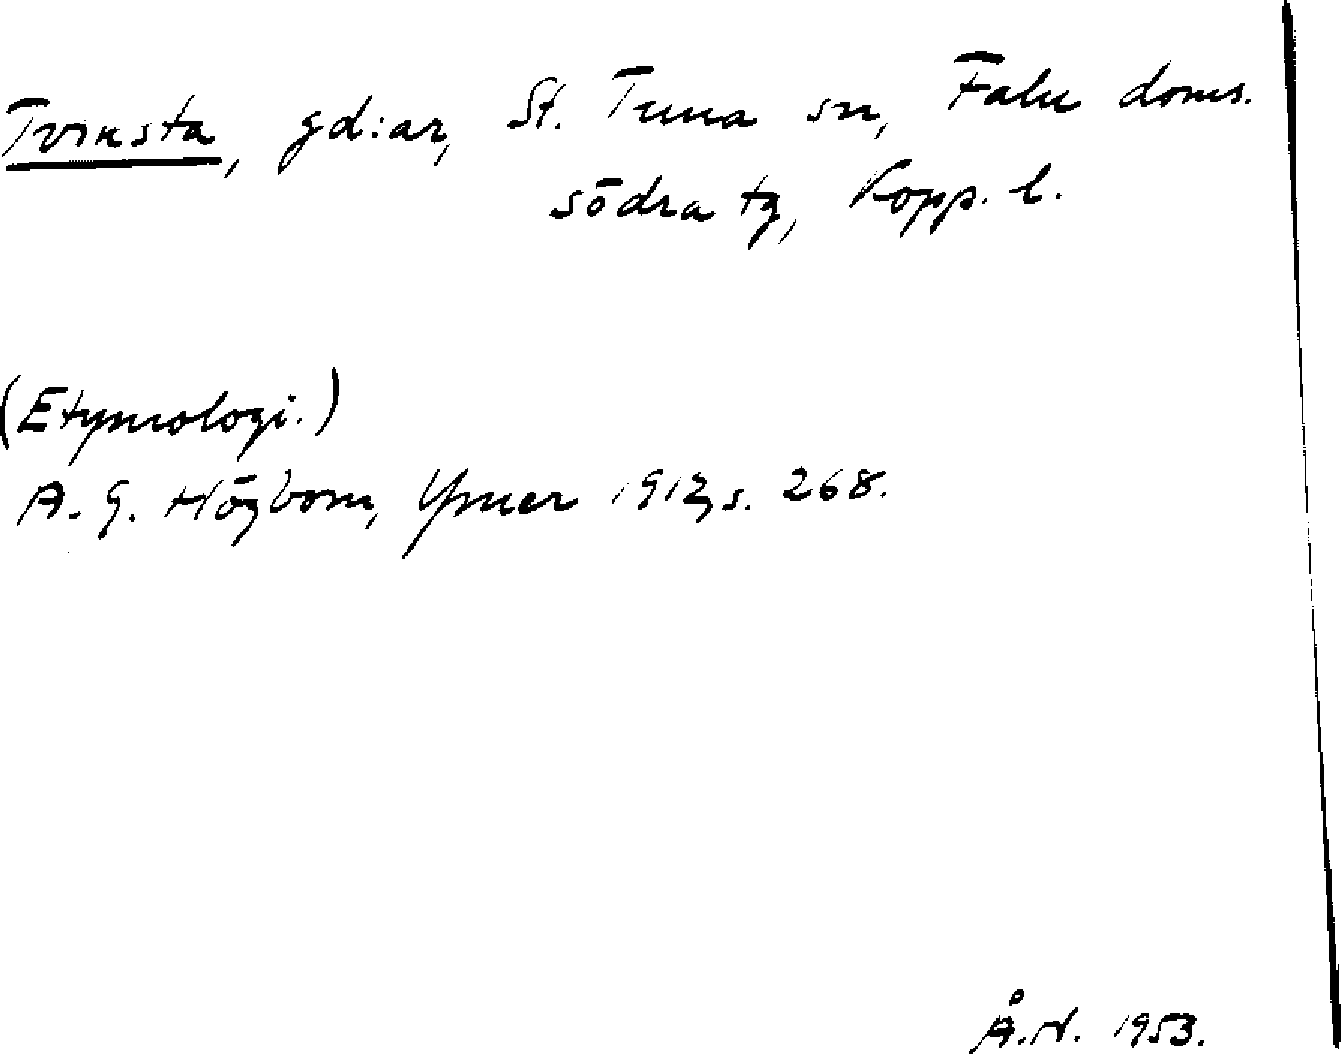 Tvinsta, gd:ar, St. Tuna sn, Falu doms.
södra tg, Kopp. l.
(Etymologi.)
A. G. Högbom, Ymer 1912, s. 268.
Å. N. 1953.